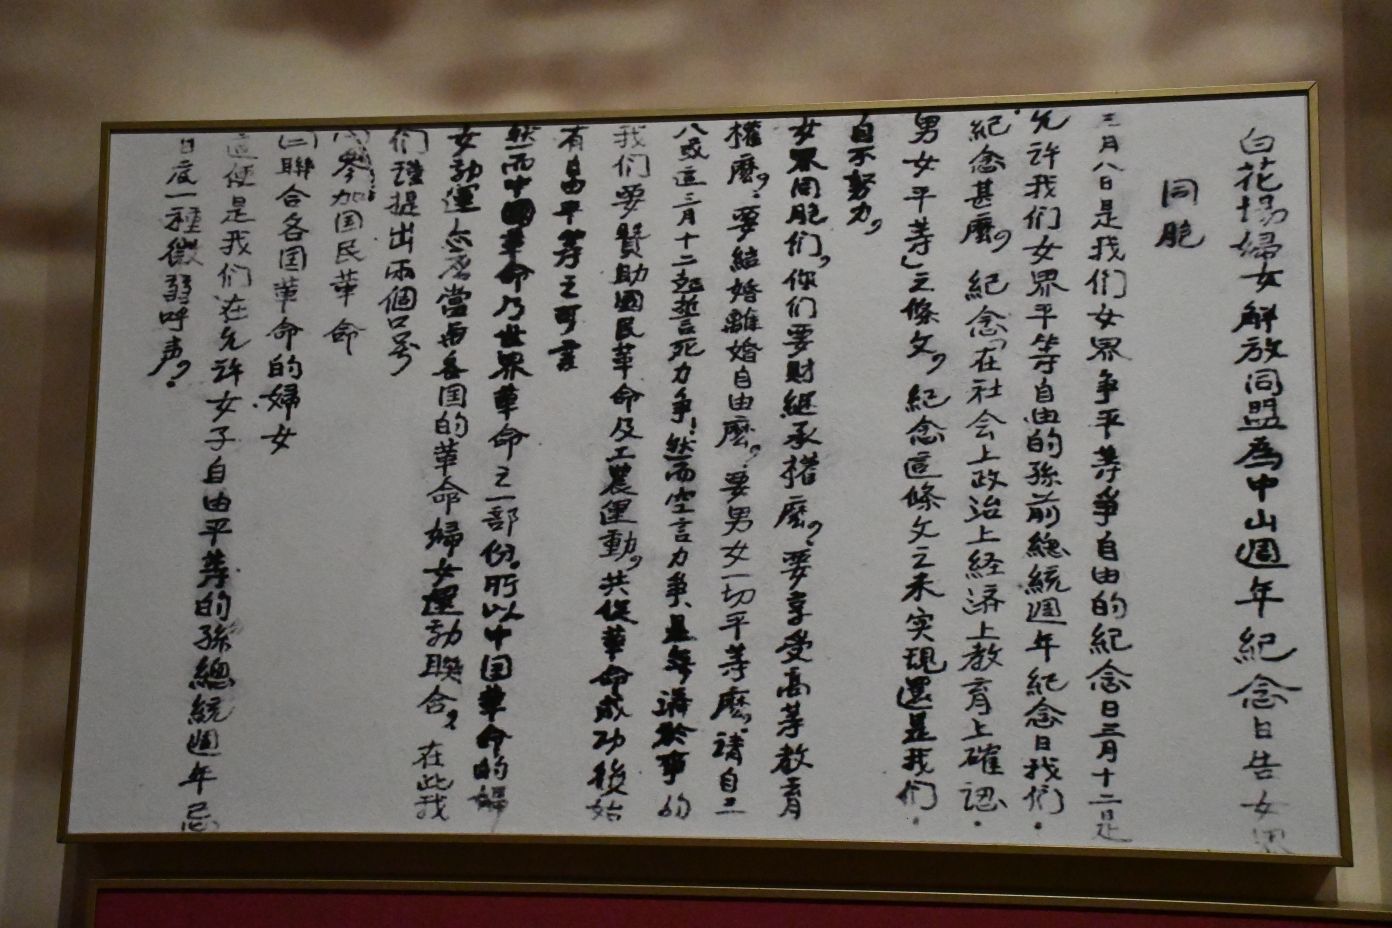 白花場婦女解放同盟為中山週年紀念日告女界
同胞
三月八日是我们女界争平等争自由的紀念日三月十二日是
允许我们女界平等自由的孫前總統週年紀念日我们
紀念甚麽，紀念「在社会上政治上経濟上教育上確認
男女平等」之條文，紀念這條文之未实現還是我们
自不努力，
女界同胞们，你们要財継承權麽，要享受高等教育
權麽，要結婚離婚自由麽，要男女一切平等麽，请自三
八或這三月十二起誓言死力争！然而空言力争是無濟於事的
我们要贊助國民革命及工農運動，共促革命成功後始
有自由平等之可言
然而中國革命乃世界革命之一部份。所以中国革命的婦
女動運亦應當與各国的革命婦女運動聯合，在此我
们謹提出兩個口号
㈠參加国民革命
㈡聯合各国革命的婦女
這便是我们在允许女子自由平等的孫總統週年忌
日底一種微弱呼声，